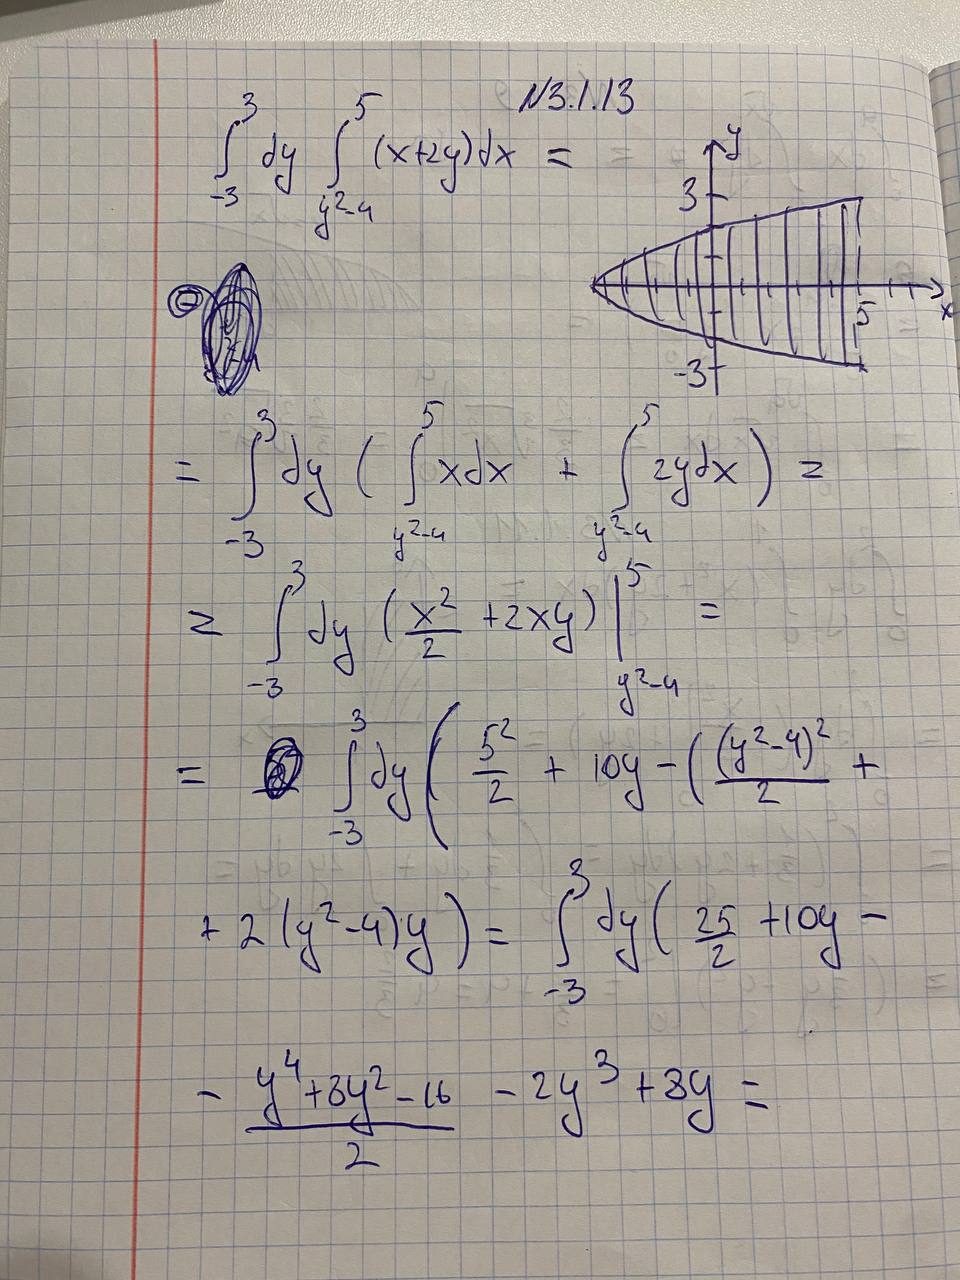 N3.1.13
∫_{-3}^{3} dy ∫_{y²-4}^{5} (x+2y)dx =
y
3
-3
5
x
= ∫_{-3}^{3} dy ( ∫_{y²-4}^{5} xdx + ∫_{y²-4}^{5} 2ydx ) =
= ∫_{-3}^{3} dy (x²/2 + 2xy) |_{y²-4}^{5} =
= ∫_{-3}^{3} dy ( 5²/2 + 10y - ( (y²-4)²/2 +
+ 2(y²-4)y ) = ∫_{-3}^{3} dy ( 25/2 + 10y -
- (y⁴+8y²-16)/2 - 2y³ + 8y =